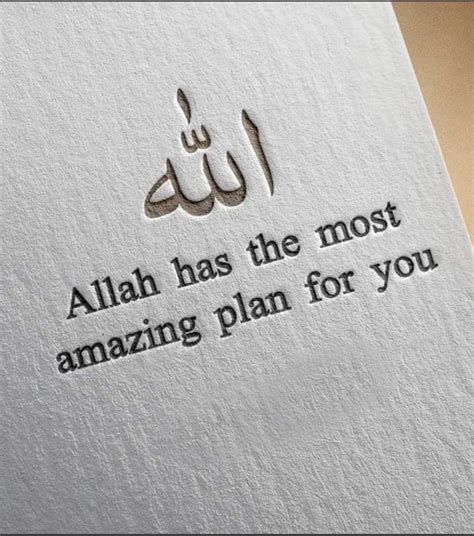 الله
Allah has the most
amazing plan for you